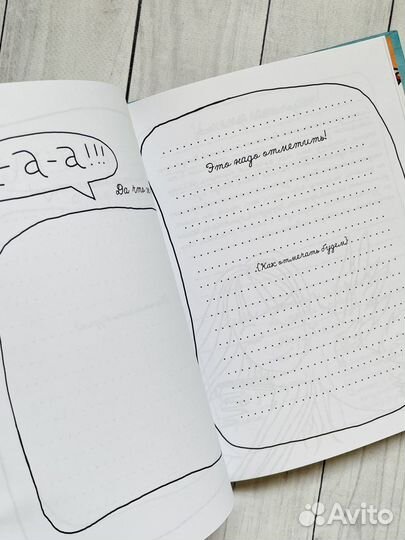 -а-а!!!
Да что
Это надо отметить!
(Как отмечать будем)
Avito